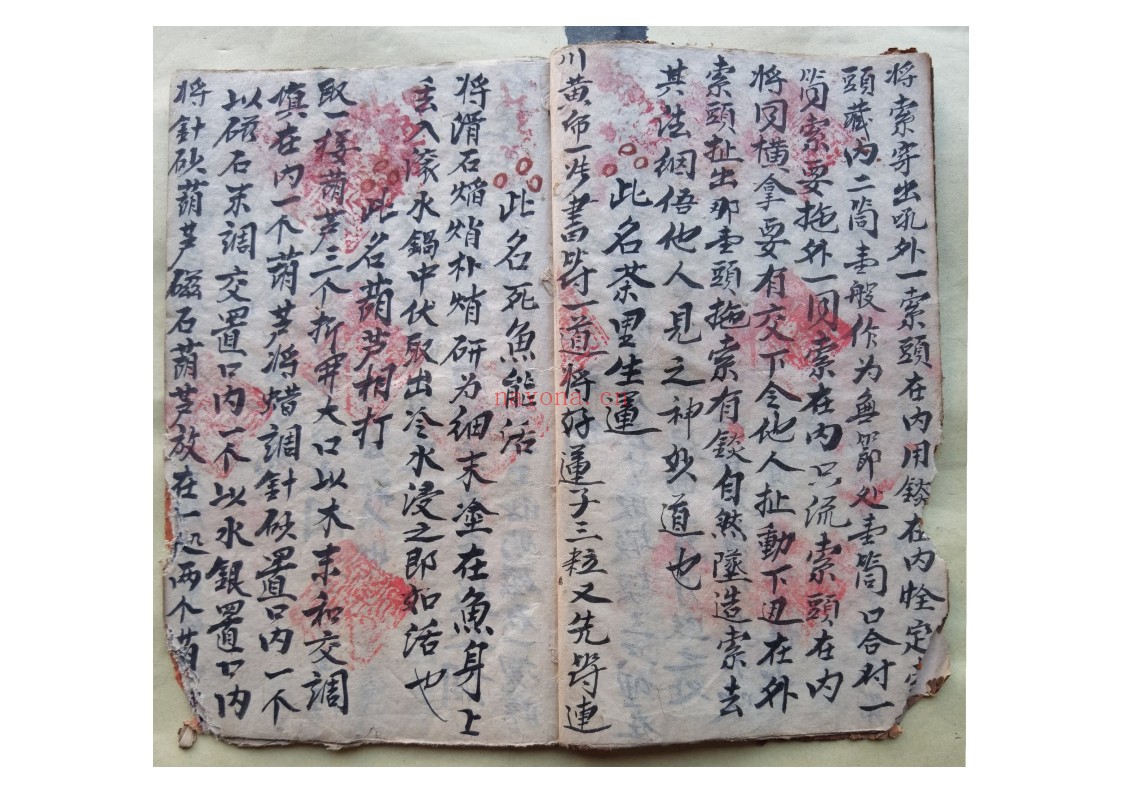 将索穿出吼外一索頭在内用錢在内栓定
頭藏内二筒壹般作為無節处壹筒口合对一
筒索要拖外一同索在内只流索頭在内
将同横拿要有交下令他人扯動下丑在外
索頭扯出那壹頭拖索有錢自然墜造索去
其法綑悟他人見之神妙道也
此名茶里生蓮
川黄布一片書一道将好蓮子三粒又先連
此名死魚能活
将滑石焰焇朴焇研为細末塗在魚身上
丢入滚水鍋中伏取出冷水浸之即如活也
此名葫芦相打
取一接葫芦三个折開大口以木末和交調
慎在内一个葫芦将蜡調針砂置口内一个
以磁石末調交置口内一个以水銀置口内
将針砂葫芦磁石葫芦放在一処两个葫
nayona.cn